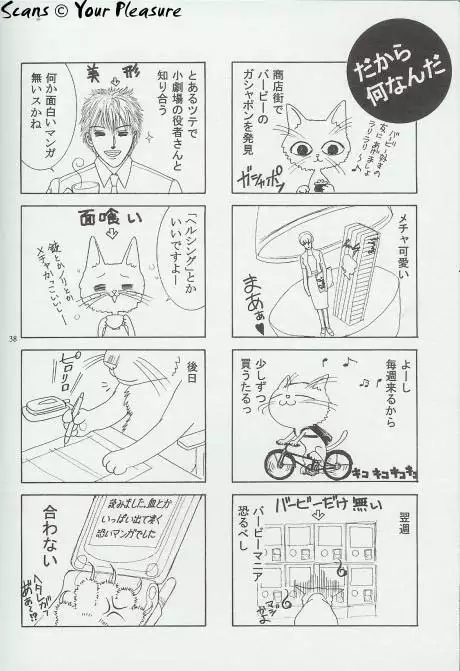 Scans © Your Pleasure
だから
何なんだ
商店街で
バービーの
ガシャポンを発見
ガシャポン
メチャ可愛い
まあぁ♥
よーし
毎週来るから
少しずつ
買うたるっ
キコ キコ キコ キコ
翌週
バービーだけ無い
バービーマニア
恐るべし
とあるツテで
小劇場の役者さんと
知り合う
美形
何か面白いマンガ
無いスかね
「ヘルシング」とか
いいですよー
面喰い
銃とかノリとか
メチャかっこいいしー
後日
ピロリロ
読みました。血とか
いっぱい出て凄く
恐いマンガでした
合わない
38